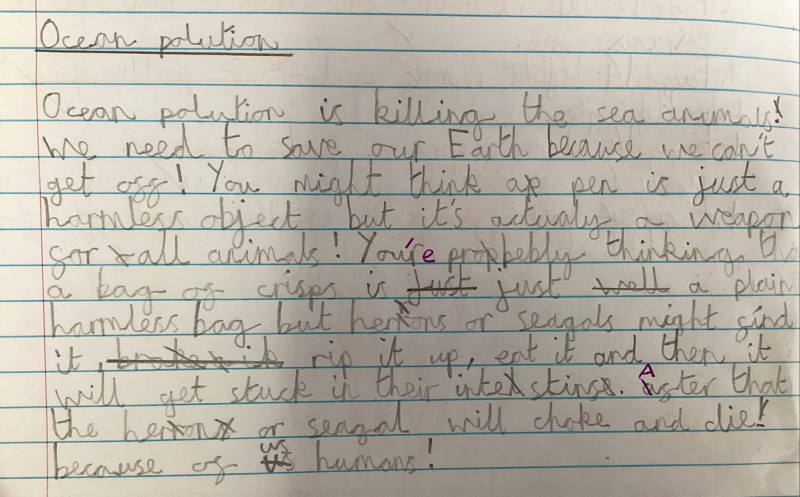 Ocean polution
Ocean polution is killing the sea animals!
We need to save our Earth because we can't
get off! You might think a pen is just a
harmless object but it's actualy a weapon
for all animals! You're probebly thinking th
a bag of crisps is just just well a plain
harmless bag but herons or seagals might find
it, rip it up, eat it and then it
will get stuck in their intestins. After that
the heron or seagal will choke and die!
because of us humans!